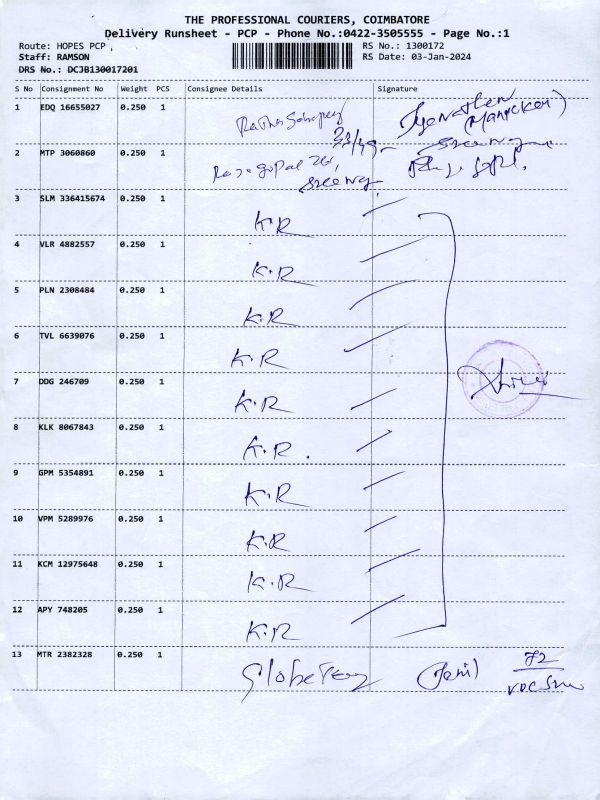 THE PROFESSIONAL COURIERS, COIMBATORE
Delivery Runsheet - PCP - Phone No.:0422-3505555 - Page No.:1
Route: HOPES PCP
Staff: RAMSON
DRS No.: DCJB130017201
RS No.: 1300172
RS Date: 03-Jan-2024
S No Consignment No Weight PCS Consignee Details Signature
1 EDQ 16655027 0.250 1
33/49
2 MTP 3060860 0.250 1
3 SLM 336415674 0.250 1 K.R
4 VLR 4882557 0.250 1 K.R
5 PLN 2308484 0.250 1 K.R
6 TVL 6639076 0.250 1 K.R
7 DDG 246709 0.250 1 K.R
8 KLK 8067843 0.250 1 K.R.
9 GPM 5354891 0.250 1 K.R
10 VPM 5289976 0.250 1 K.R
11 KCM 12975648 0.250 1 K.R
12 APY 748205 0.250 1 K.R
13 MTR 2382328 0.250 1